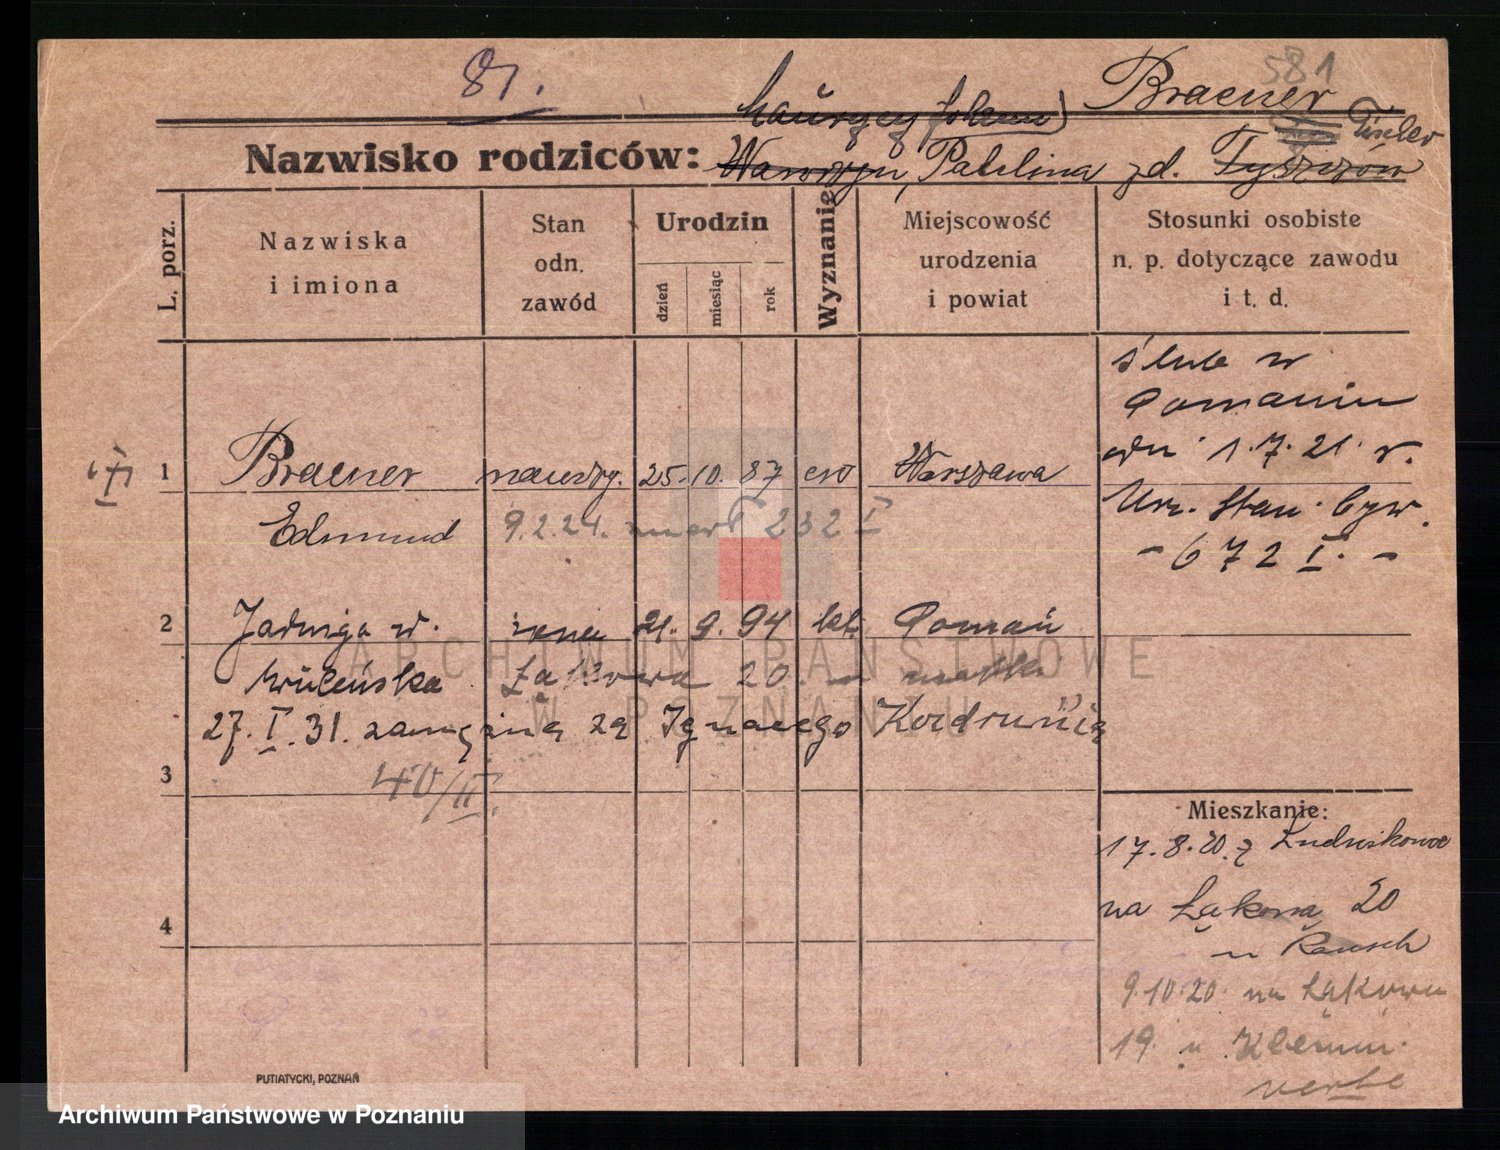 81.
581
Maurycy Braeuer
Nazwisko rodziców: Wawrzyn, Paulina zd. Tyszczów Tischler
L. porz.
Nazwiska i imiona
Stan odn. zawód
Urodzin
dzień
miesiąc
rok
Wyznanie
Miejscowość urodzenia i powiat
Stosunki osobiste n. p. dotyczące zawodu i t. d.
ślub w
Poznaniu
dn. 1.7.21 r.
Urz. Stan. Cyw.
- 672 I. -
1 Braeuer nauczy. 25. 10. 87 ew Warszawa
Edmund 9.2.24. zmarł 232 I
2 Jadwiga w. żona 21. 9. 94 kt. Poznań
Wileńska Łąkowa 20 u matki
27. I. 31. zamężna za Ignacego
40/II.
3
Mieszkanie:
17.8.20. z
na Łąkową 20
u Rausch
9.10.20 na Łąkowa
19. u
4
PUTIATYCKI, POZNAŃ
ARCHIWUM PAŃSTWOWE
W POZNANIU
Archiwum Państwowe w Poznaniu